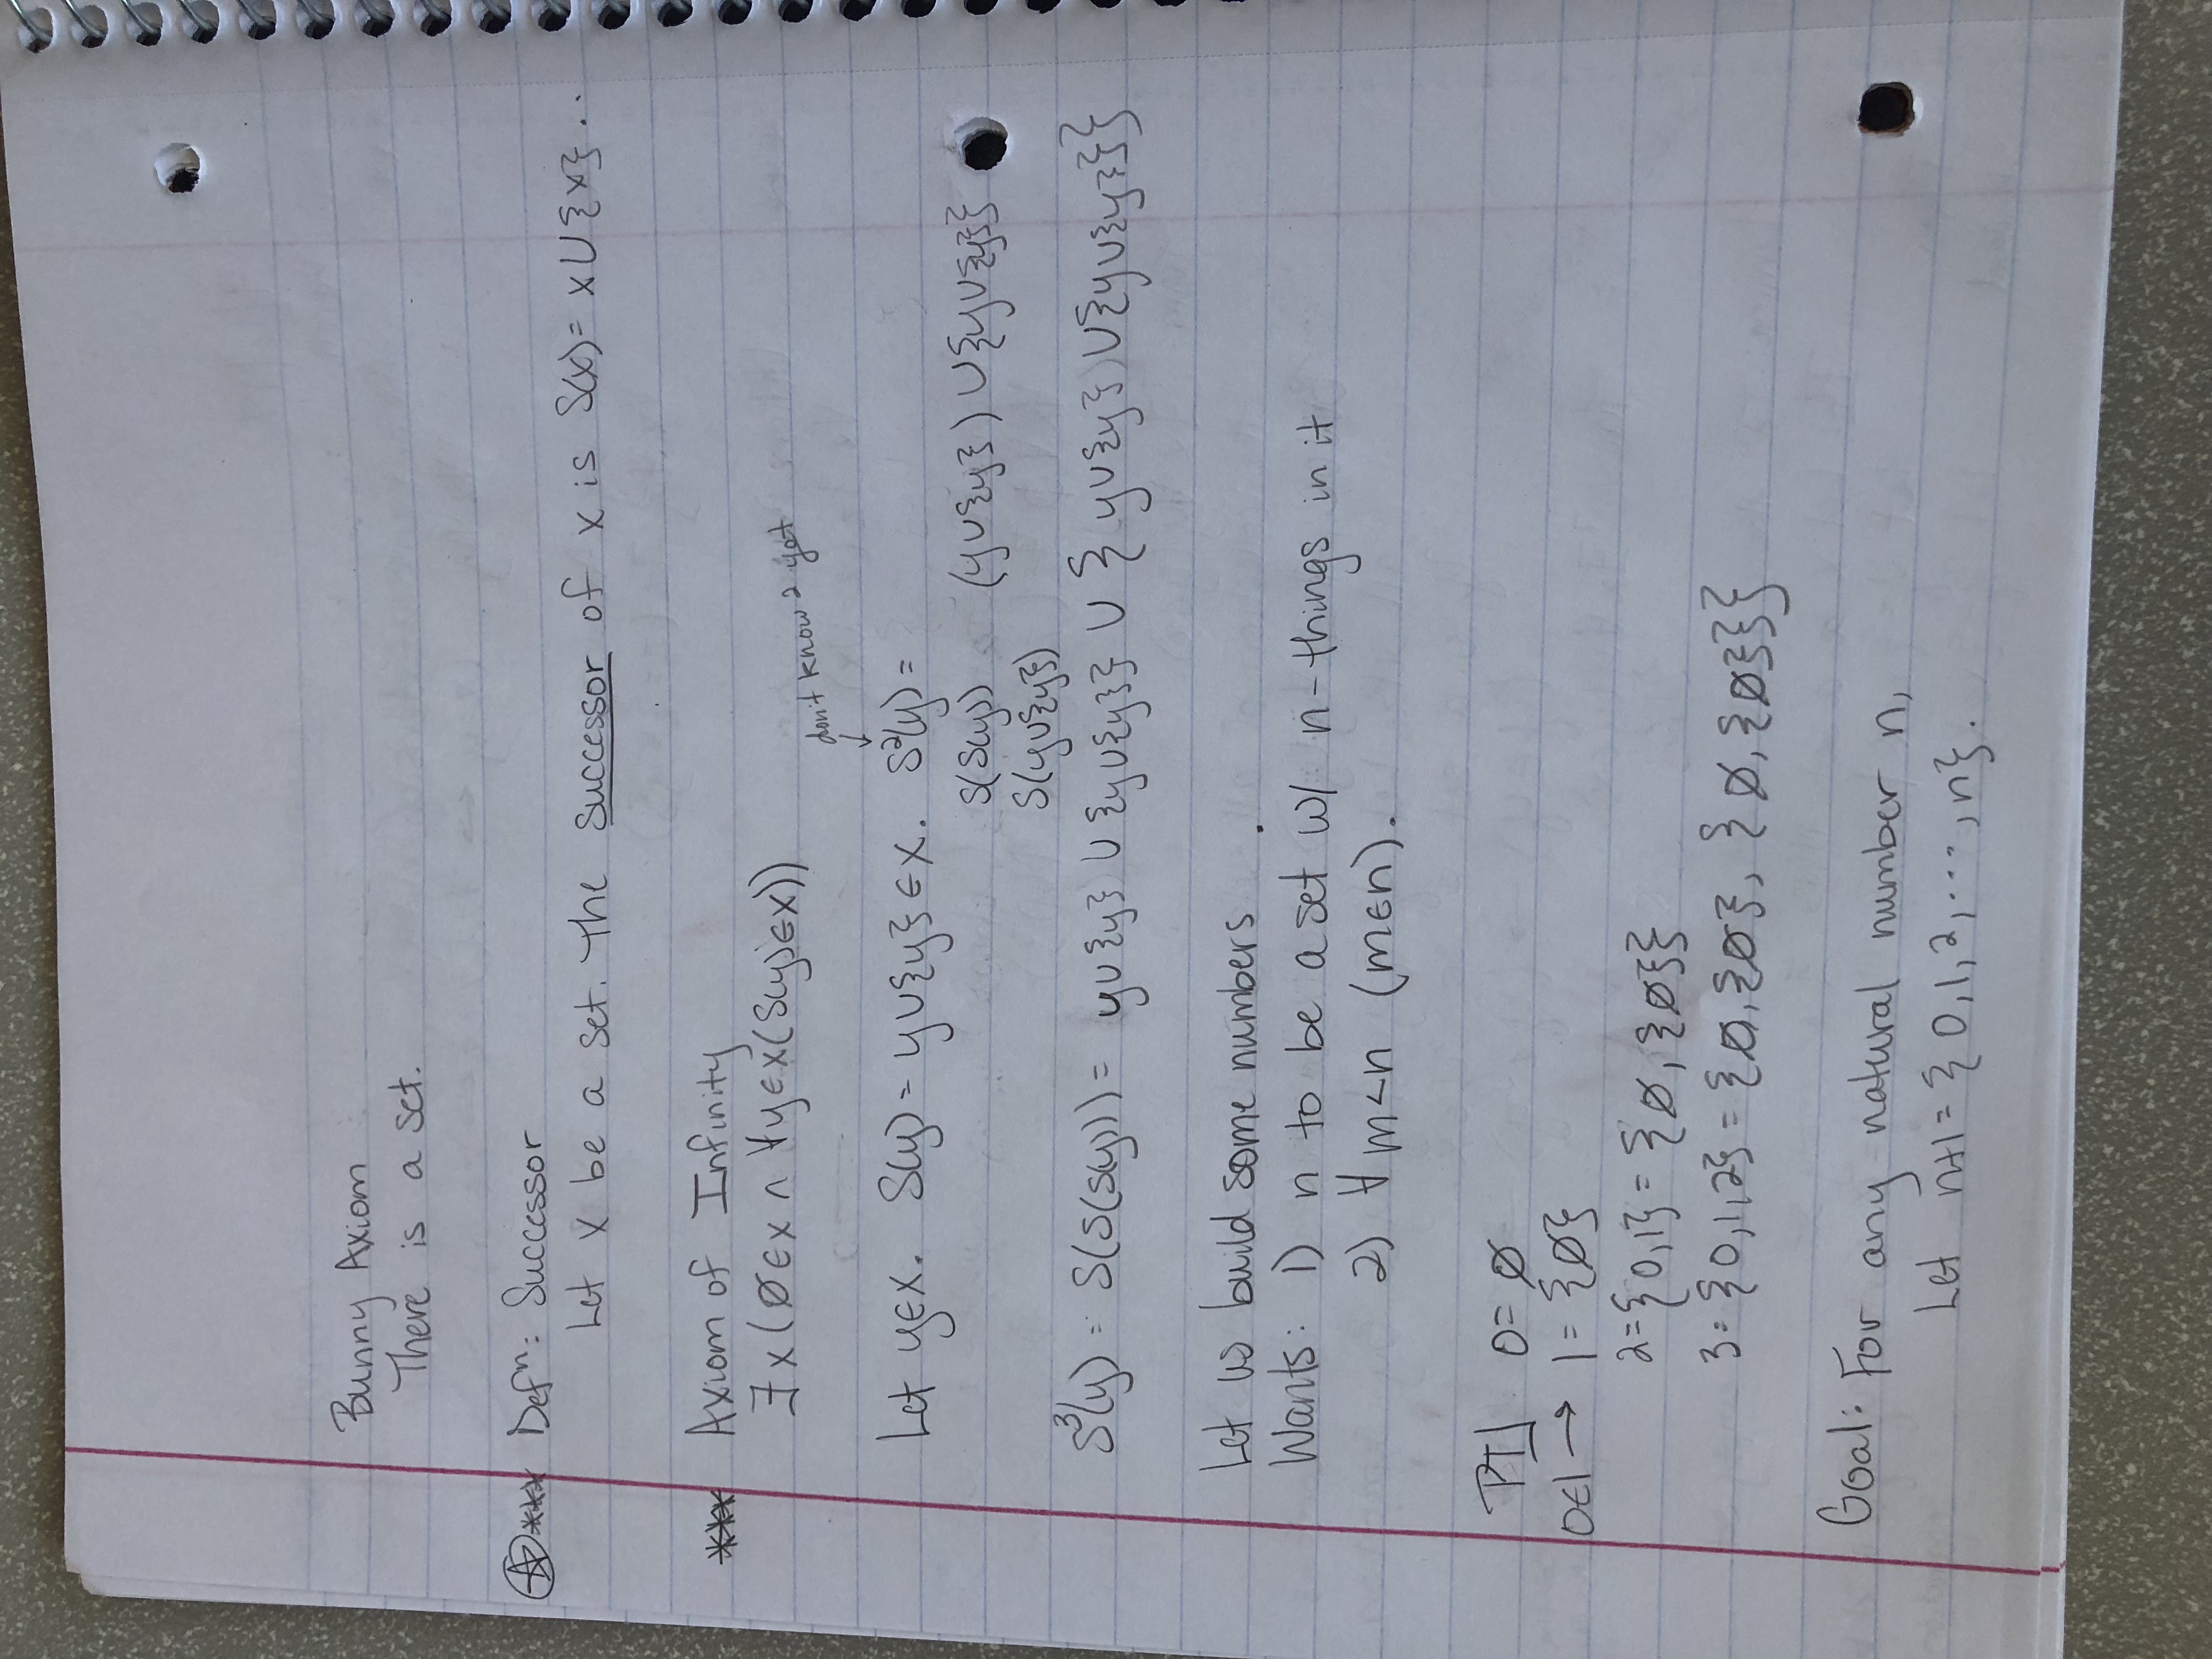 Bunny Axiom
There is a set.
*** Defⁿ: Successor
Let x be a set. The successor of x is S(x)= x∪{x}..
*** Axiom of Infinity
∃x(∅∈x ∧ ∀y∈x(S(y)∈x))
don't know 2 yet
↓
Let y∈x. S(y)= y∪{y}∈x. S²(y)=
S(S(y)) (y∪{y})∪{y∪{y}}
S(y∪{y})
S³(y) = S(S(S(y)))= y∪{y} ∪ {y∪{y}} ∪ { y∪{y})∪{y∪{y}}}
Let us build some numbers.
Wants: 1) n to be a set w/ n-things in it
2) ∀m<n (m∈n).
PI] 0= ∅
0∈1 → 1= {∅}
2={0,1} = {∅, {∅}}
3= {0,1,2} = {∅,{∅}, {∅, {∅}}}
Goal: For any natural number n,
Let n+1= {0,1,2,...,n}.